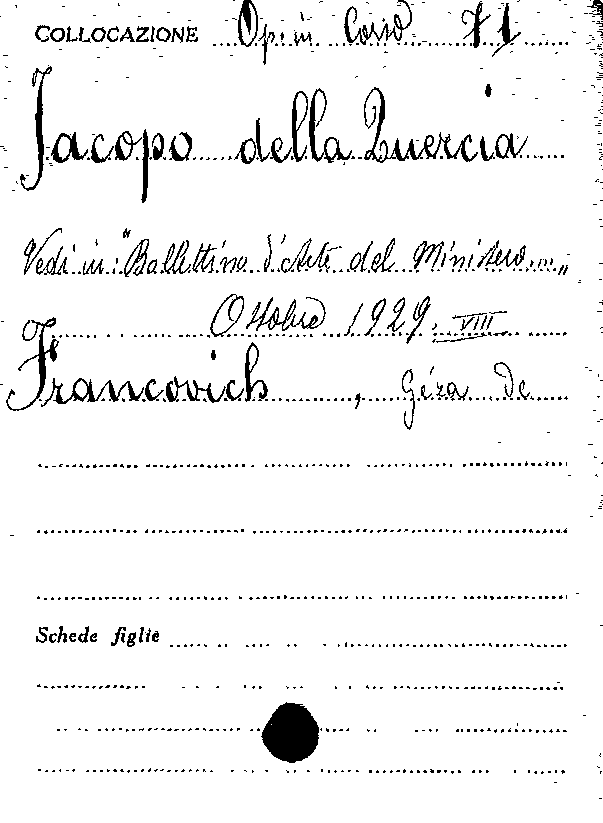 COLLOCAZIONE Op. in Corso 71
Jacopo della Quercia
Vedi in: "Bollettino d'Arte del Ministero..."
Ottobre 1929. VIII
Francovich, Géza de
Schede figlie